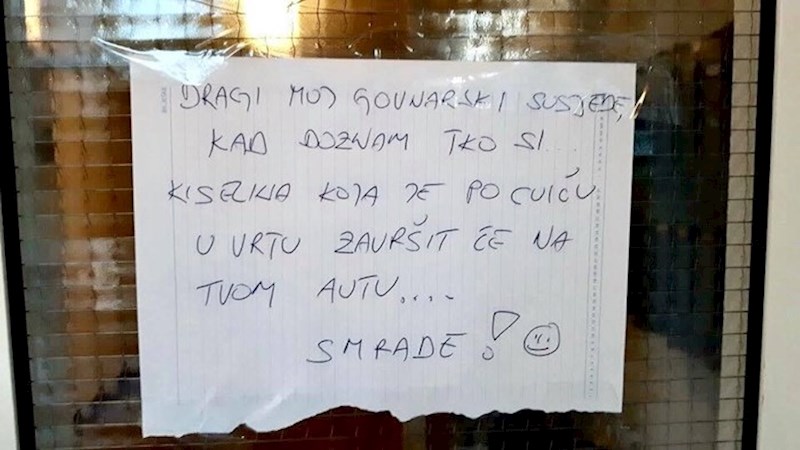 DRAGI MOJ GOVNARSKI SUSJEDE,
KAD DOZNAM TKO SI...
KISELINA KOJA JE PO CVIĆU
U VRTU ZAVRŠIT ĆE NA
TVOM AUTU....
SMRADE!